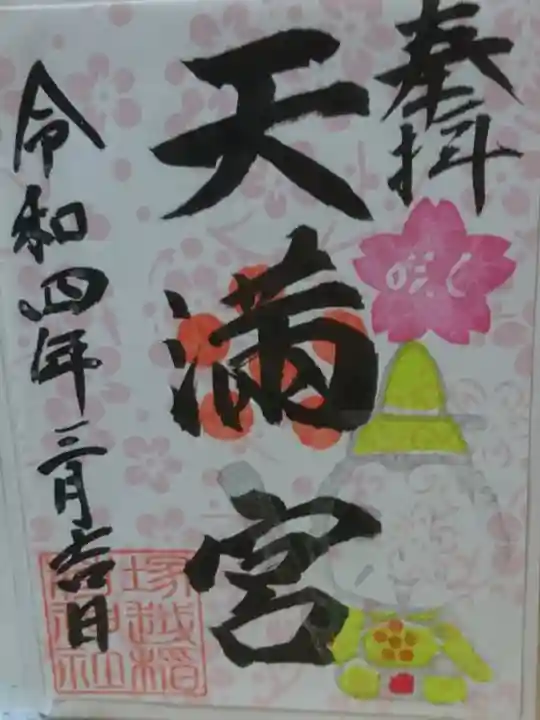 奉拝
咲く
天満宮
令和四年三月吉日
塚越稲荷神社